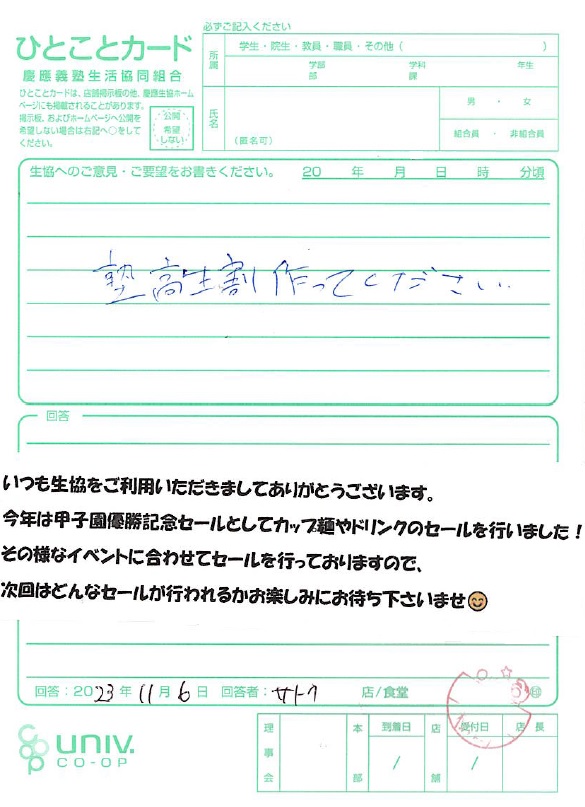 必ずご記入ください
ひとことカード
慶應義塾生活協同組合
ひとことカードは、店頭掲示板の他、慶應生協ホーム
ページにも掲載されることがあります。
掲示板、およびホームページへ公開を
希望しない場合は右記へ○をして
ください。
公開
希望
しない
所属
学生・院生・教員・職員・その他（ ）
学部 学科 年生
部 課
氏名
（匿名可）
男 ・ 女
組合員 ・ 非組合員
生協へのご意見・ご要望をお書きください。 20 年 月 日 時 分頃
塾高生割作ってください.
回答
いつも生協をご利用いただきましてありがとうございます。
今年は甲子園優勝記念セールとしてカップ麺やドリンクのセールを行いました！
その様なイベントに合わせてセールを行っておりますので、
次回はどんなセールが行われるかお楽しみにお待ち下さいませ😊
回答：2023年11月6日 回答者：サトウ 店/食堂 ㊞
univ.
CO-OP
理事会
本部
到着日
/
店舗
受付日
/
店長